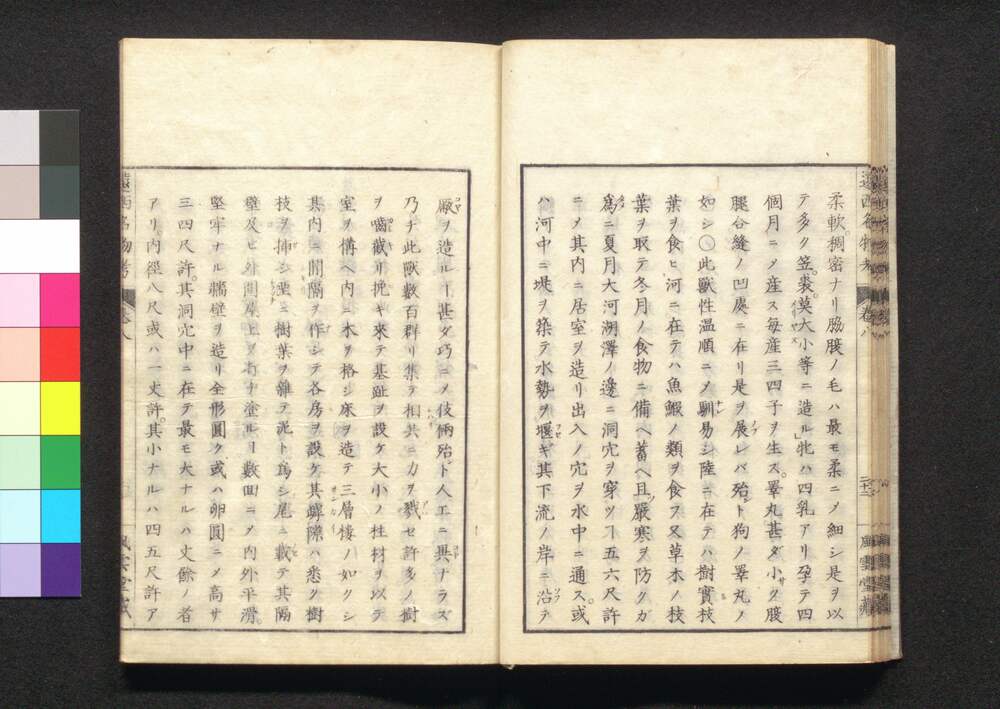 遠西名物考 卷八 二十二 風雲堂藏
柔軟稠密ナリ脇腹ノ毛ハ最モ柔ニメ細シ是ヲ以
テ多ク笠。裘。莫大小等ニ造ル」牝ハ四乳アリ孕テ四
個月ニメ産ス毎産三四子ヲ生ス。睪丸甚ダ小ク腹
腿合縫ノ凹處ニ在リ是ヲ展レバ殆ト狗ノ睪丸ノ
如シ〇此獸性温順ニメ馴易シ陸ニ在テハ樹實枝
葉ヲ食ヒ河ニ在テハ魚鰕ノ類ヲ食フ又草木ノ枝
葉ヲ取テ冬月ノ食物ニ備ヘ蓄ヘ且嚴寒ヲ防クガ
爲ニ夏月大河湖澤ノ邊ニ洞穴ヲ穿ツヿ五六尺許
ニメ其内ニ居室ヲ造リ出入ノ穴ヲ水中ニ通ス。或
ハ河中ニ堤ヲ築テ水勢ヲ堰ギ其下流ノ岸ニ沿テ
厰ヲ造ルヿ甚ダ巧ニメ伎倆殆ド人工ニ異ナラズ
乃チ此獸數百群リ集テ相共ニ力ヲ戮セ許多ノ樹
ヲ嚙截リ挽キ來テ基趾ヲ設ケ大小ノ柱材ヲ以テ
室ヲ構ヘ内ニ木ヲ格シ床ヲ造テ三層樓ノ如クシ
其内ニ間隔ヲ作シテ各房ヲ設ケ其罅隙ハ悉ク樹
技ヲ挿シ葉ニ樹葉ヲ雜ヲ泥ト爲シ尾ニ載テ其隔
壁及ヒ外圍屋上ヲ塗ルヿ數回ニメ内外平滑。
堅牢ナル牆壁ヲ造リ全形圓ク或ハ卵圓ニメ高サ
三四尺許。其洞穴中ニ在テ最モ大ナルハ丈餘ノ者
アリ内徑八尺或ハ一丈許。其小ナルハ四五尺許ア
遠西名物考 卷八 風雲堂藏